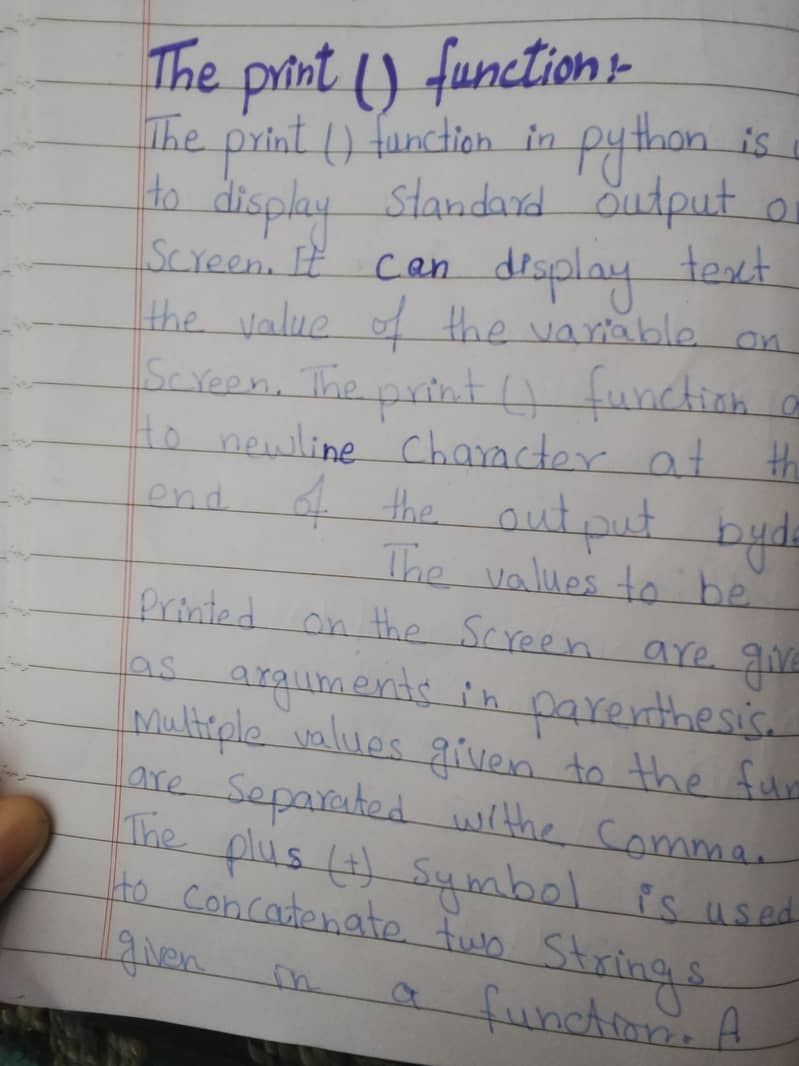 The print () function :-
The print () function in python is
to display Standard output
Screen. It can display text
the value of the variable on
Screen. The print () function
to newline Character at
end of the output
The values to be
Printed on the Screen are
as arguments in parenthesis.
Multiple values given to the
are separated withe Comma.
The plus (+) symbol is used
to concatenate two Strings
given in a function. A